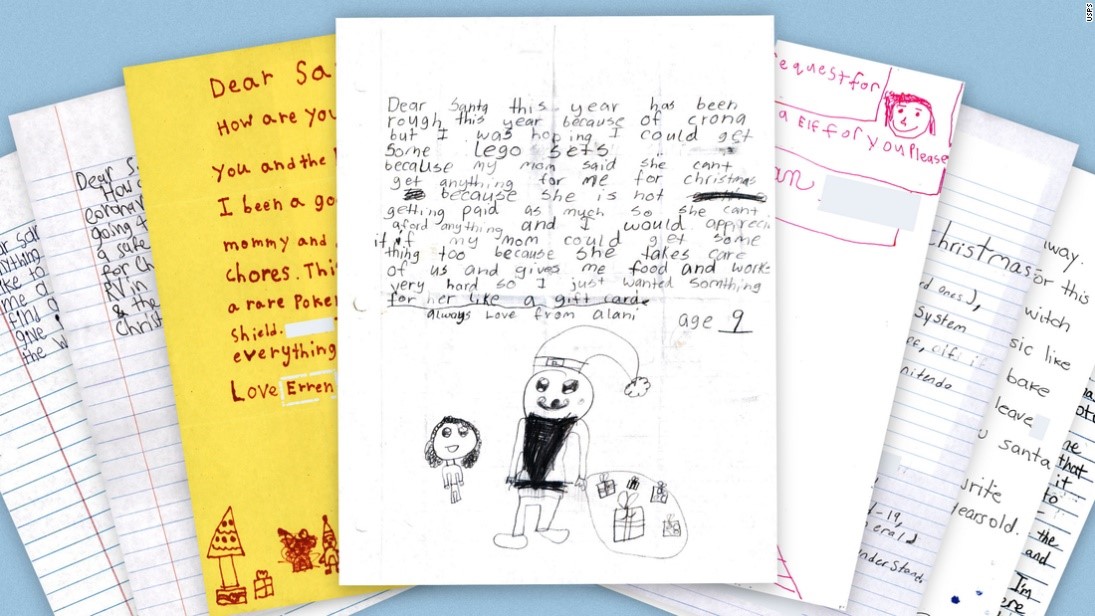 USPS
Dear Santa this year has been
rough this year because of crona
but I was hoping I could get
some lego sets
because my mom said she cant
get anything for me for christmas
because she is not
getting paid as much so she cant
aford anything and I would appreci
it if my mom could get some
thing too because she takes care
of us and gives me food and works
very hard so I just wanted somthing
for her like a gift card
always Love from alani
age 9
Dear Sa
How are you
you and the
I been a go
mommy and
chores. This
a rare Poke
shield.
everything
Love Erren
Dear S
How
coronav
going t
a safe
for Ch
RV in
& the
Christ
ar sar
nything
ike to
me a
find a
give
the w
equest for
a Elf for you Please
an
christmas
rd ones),
System
nitendo
d-19,
erald
understand
away.
or this
witch
sic like
bake
leave
u santa
write
years old.
that
it
to
the
and
I'm